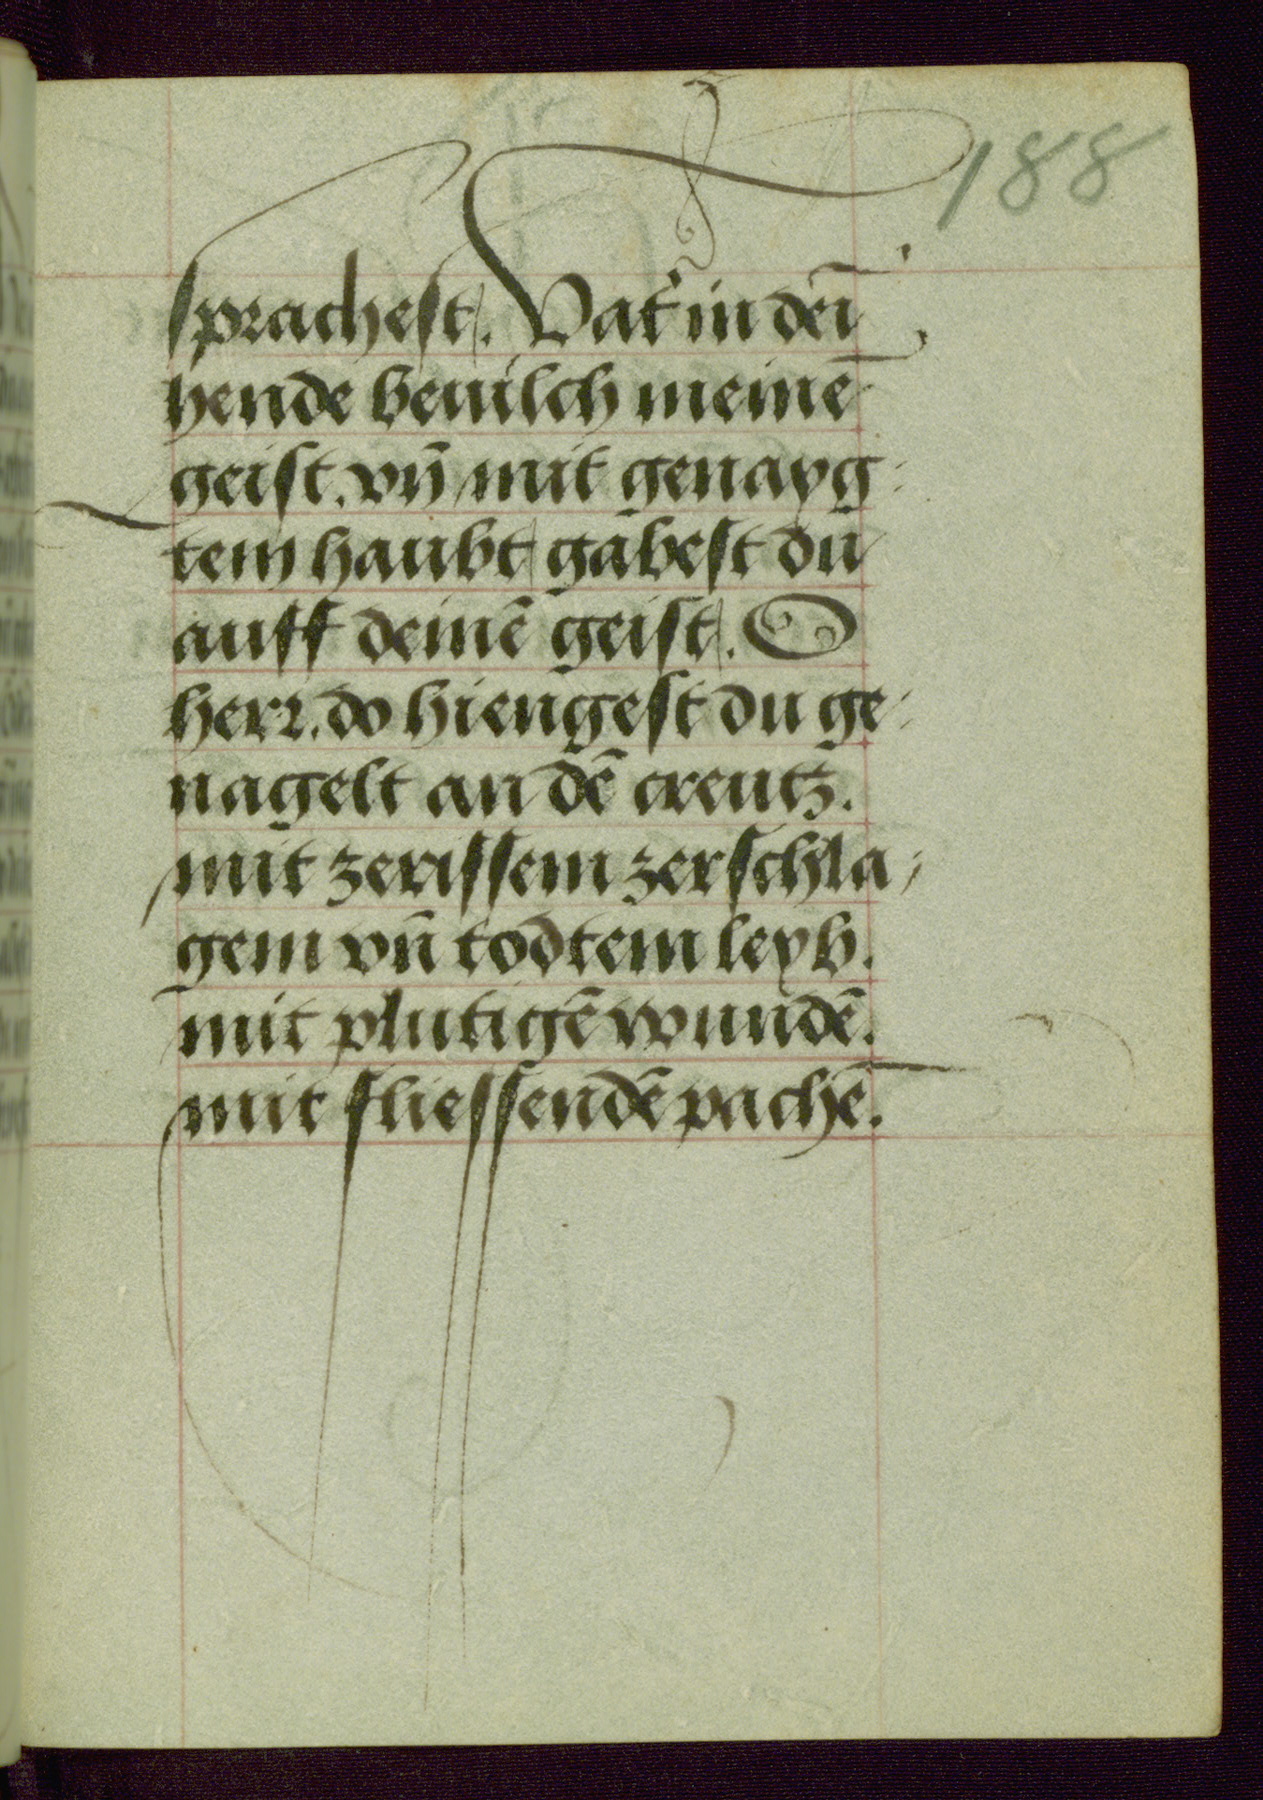 188
sprachest. Vat' in dei̅
hende beuilch meine̅
geist. vn̅ mit genayg
tem haubt gabest du
auff deine̅ geist. O
herr. do hiengest du ge
nagelt an de̅ creutz.
mit zerissem zerschla
gem vn̅ todtem leyb.
mit plutige̅ wunde̅.
mit fliessende̅ pache̅.